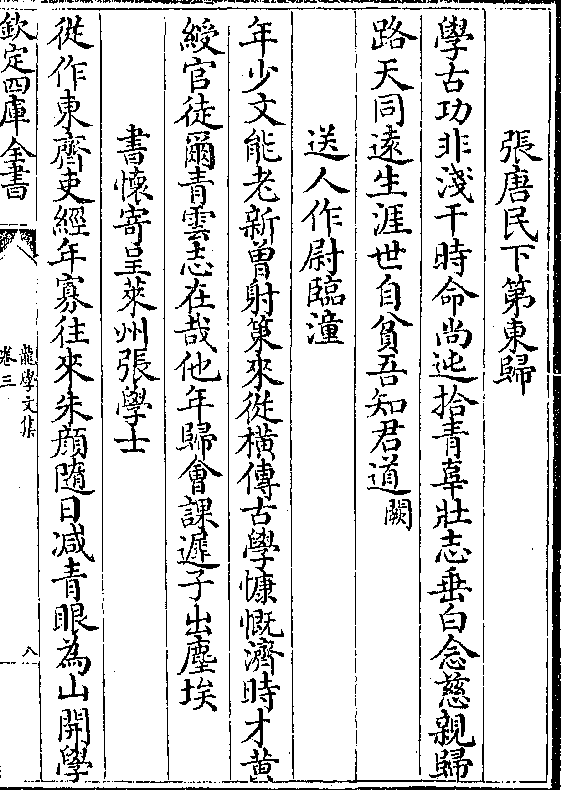 張唐民下第東歸
學古功非淺干時命尚迍拾青辜壯志垂白念慈親歸
路天同遠生涯世自貧吾知君道闕
送人作尉臨潼
年少文能老新曽射策來從橫傳古學慷慨濟時才黄
綬官徒爾青雲志在哉他年歸會課遲子出塵埃
書懷寄呈萊州張學士
從作東齊吏經年寡往來朱顔隨日减青眼為山開學
欽定四庫全書
龍學文集
卷三
八